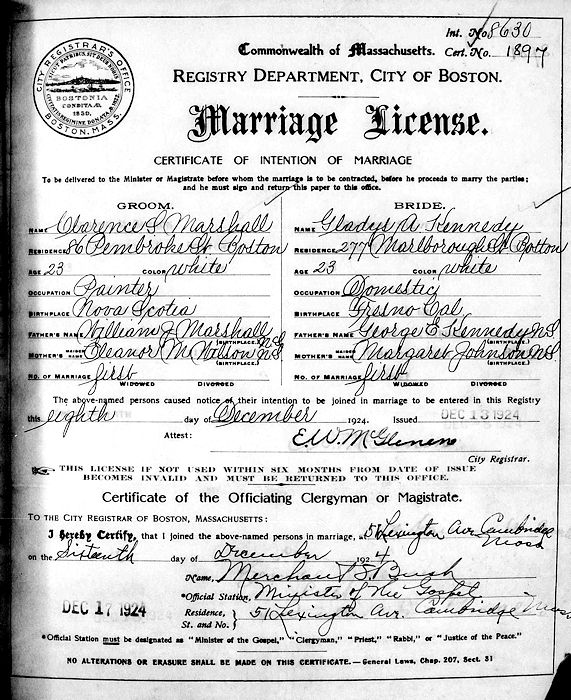 Int. No. 8630
Commonwealth of Massachusetts. Cert. No. 1897
CITY REGISTRAR'S OFFICE
BOSTONIA
CONDITA A.D.
1630.
BOSTON, MASS.
REGISTRY DEPARTMENT, CITY OF BOSTON.
Marriage License.
CERTIFICATE OF INTENTION OF MARRIAGE
To be delivered to the Minister or Magistrate before whom the marriage is to be contracted, before he proceeds to marry the parties;
and he must sign and return this paper to this office.
GROOM.
NAME Clarence S Marshall
RESIDENCE 86 Pembroke St Boston
AGE 23 COLOR White
OCCUPATION Painter
BIRTHPLACE Nova Scotia
FATHER'S NAME William J Marshall N.S.
(BIRTHPLACE.)
MOTHER'S MAIDEN NAME Eleanor M Wilson N.S.
(BIRTHPLACE.)
NO. OF MARRIAGE first
WIDOWED DIVORCED
BRIDE.
NAME Gladys A Kennedy
RESIDENCE 277 Marlborough St Boston
AGE 23 COLOR White
OCCUPATION Domestic
BIRTHPLACE Fresno Cal
FATHER'S NAME George E Kennedy N.S.
(BIRTHPLACE.)
MOTHER'S MAIDEN NAME Margaret Johnson N.S.
(BIRTHPLACE.)
NO. OF MARRIAGE first
WIDOWED DIVORCED
The above-named persons caused notice of their intention to be joined in marriage to be entered in this Registry
this eighth day of December 1924. Issued DEC 13 1924
Attest: E.W. McGlenen
City Registrar.
THIS LICENSE IF NOT USED WITHIN SIX MONTHS FROM DATE OF ISSUE
BECOMES INVALID AND MUST BE RETURNED TO THIS OFFICE.
Certificate of the Officiating Clergyman or Magistrate.
TO THE CITY REGISTRAR OF BOSTON, MASSACHUSETTS:
I Hereby Certify, that I joined the above-named persons in marriage, at 51 Lexington Ave Cambridge
Mass
on the Sixteenth day of December 1924
Name, Merchant S. Bush
*Official Station, Minister of the Gospel
DEC 17 1924
Residence, St. and No. 51 Lexington Ave. Cambridge Mass
*Official Station must be designated as "Minister of the Gospel," "Clergyman," "Priest," "Rabbi," or "Justice of the Peace."
NO ALTERATIONS OR ERASURE SHALL BE MADE ON THIS CERTIFICATE.—General Laws, Chap. 207, Sect. 31